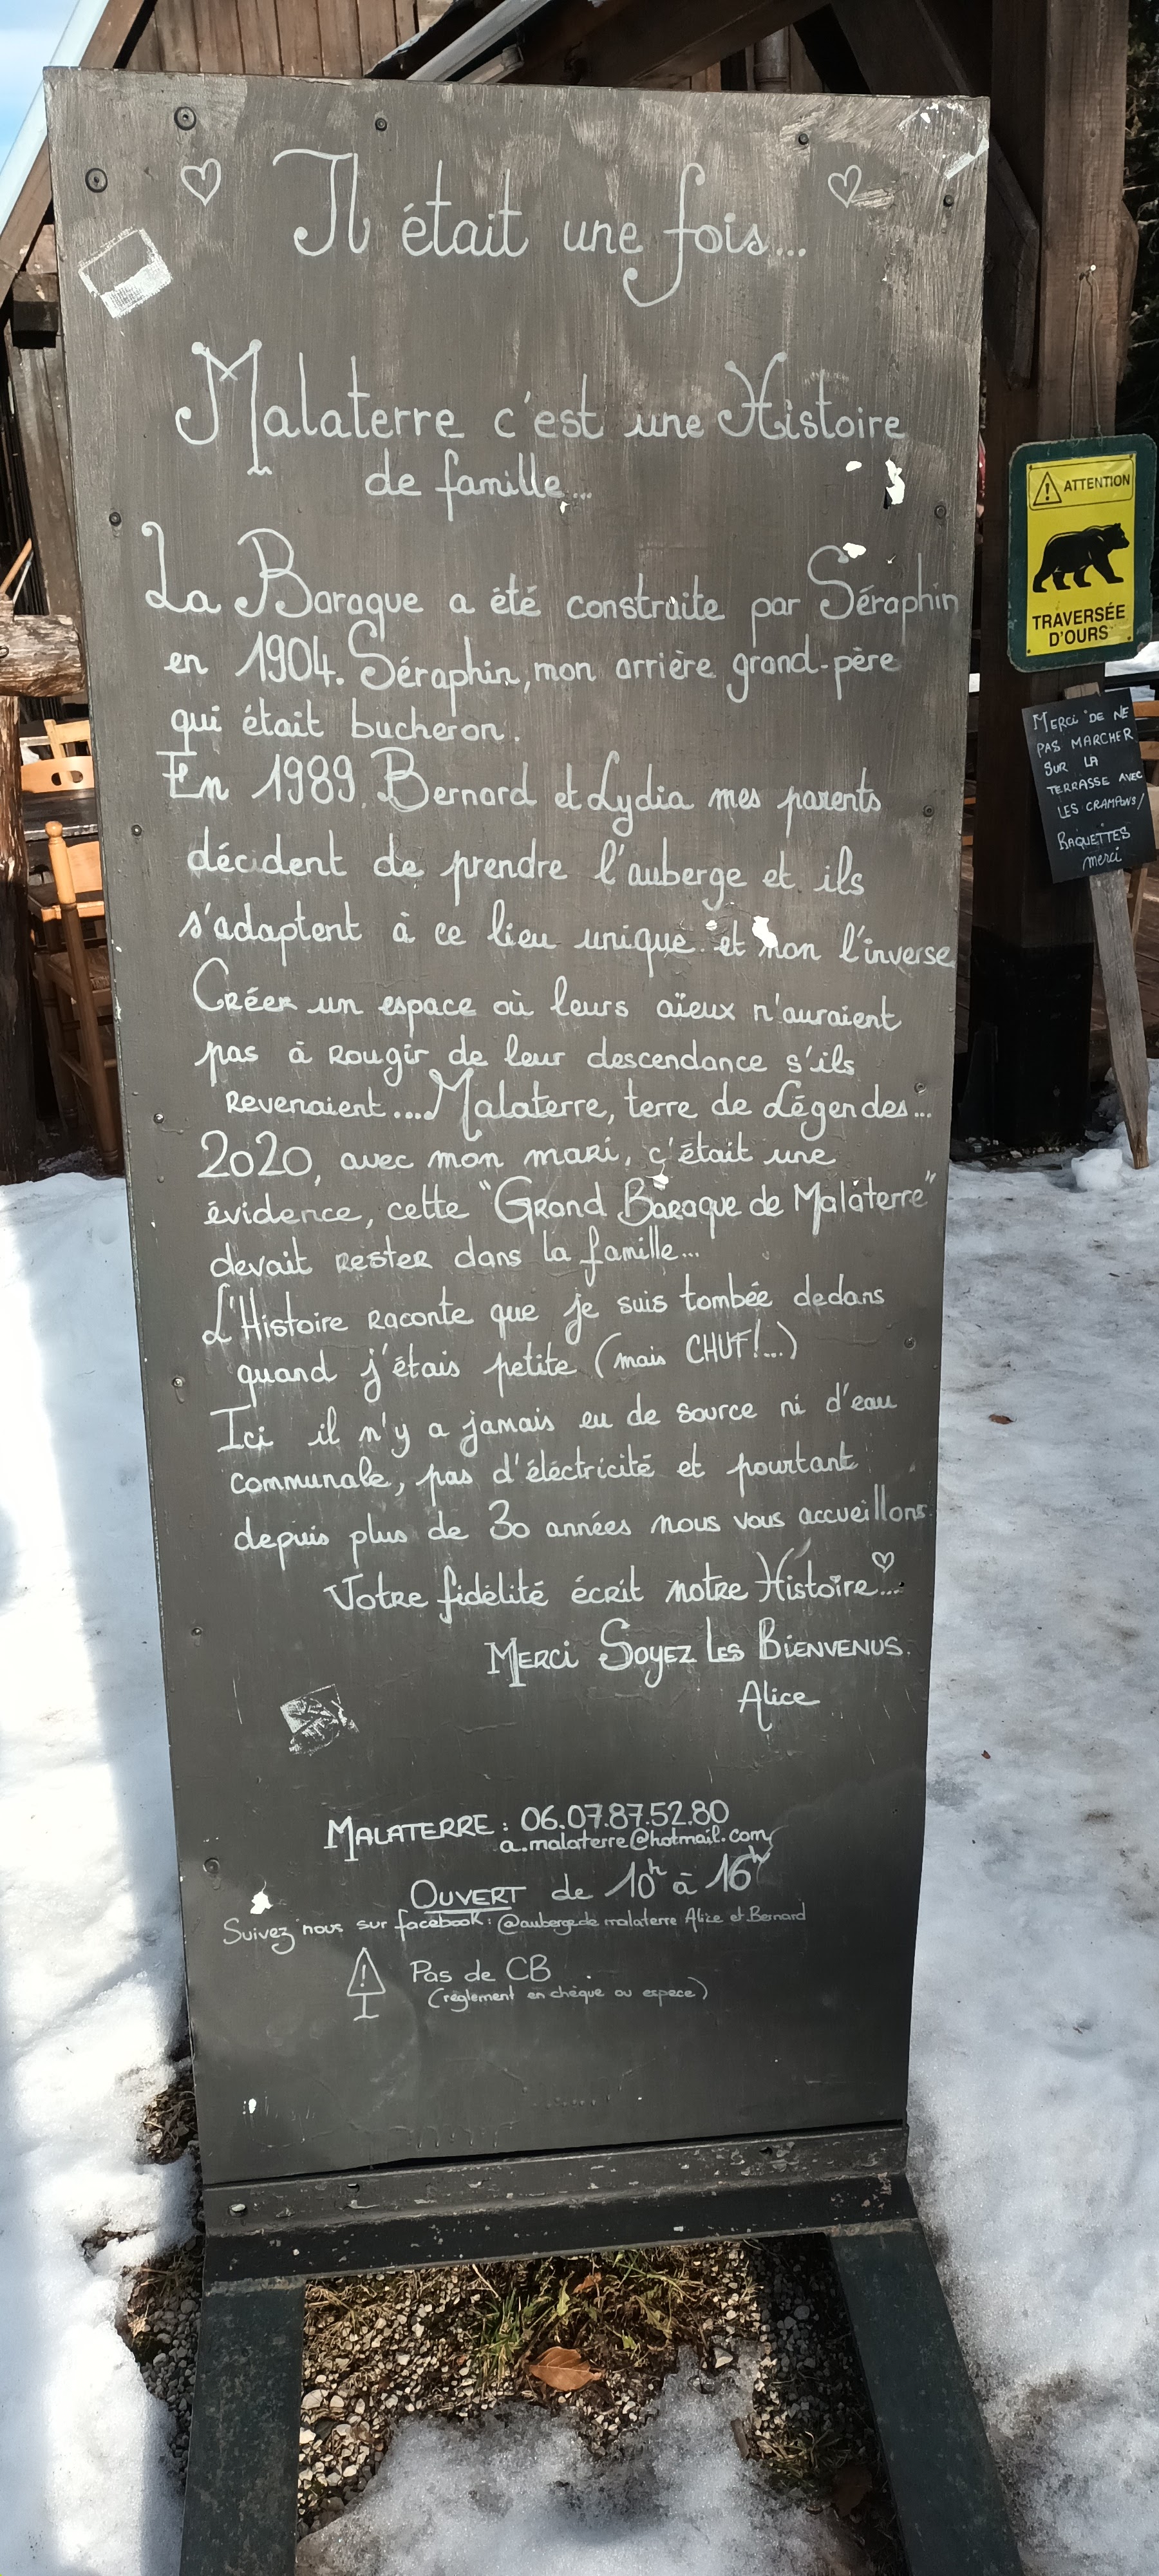 Il était une fois...
Malaterre c'est une Histoire
de famille...
La Baraque a été construite par Séraphin
en 1904. Séraphin, mon arrière grand-père
qui était bucheron.
En 1989, Bernard et Lydia mes parents
décident de prendre l'auberge et ils
s'adaptent à ce lieu unique et non l'inverse
Créer un espace où leurs aïeux n'auraient
pas à rougir de leur descendance s'ils
revenaient.... Malaterre, terre de Légendes...
2020, avec mon mari, c'était une
évidence, cette "Grand Baraque de Malaterre"
devait rester dans la famille...
L'Histoire raconte que je suis tombée dedans
quand j'étais petite (mais CHUT!...)
Ici il n'y a jamais eu de source ni d'eau
communale, pas d'éléctricité et pourtant
depuis plus de 30 années nous vous accueillons.
Votre fidélité écrit notre Histoire...
MERCI SOYEZ LES BIENVENUS.
Alice
MALATERRE : 06.07.87.52.80
a.malaterre@hotmail.com
OUVERT de 10h à 16h
Suivez nous sur facebook : @auberge de malaterre Alice et Bernard
! Pas de CB
(règlement en chèque ou espece)
ATTENTION
TRAVERSÉE
D'OURS
MERCI DE NE
PAS MARCHER
SUR LA
TERRASSE AVEC
LES CRAMPONS/
RAQUETTES
merci